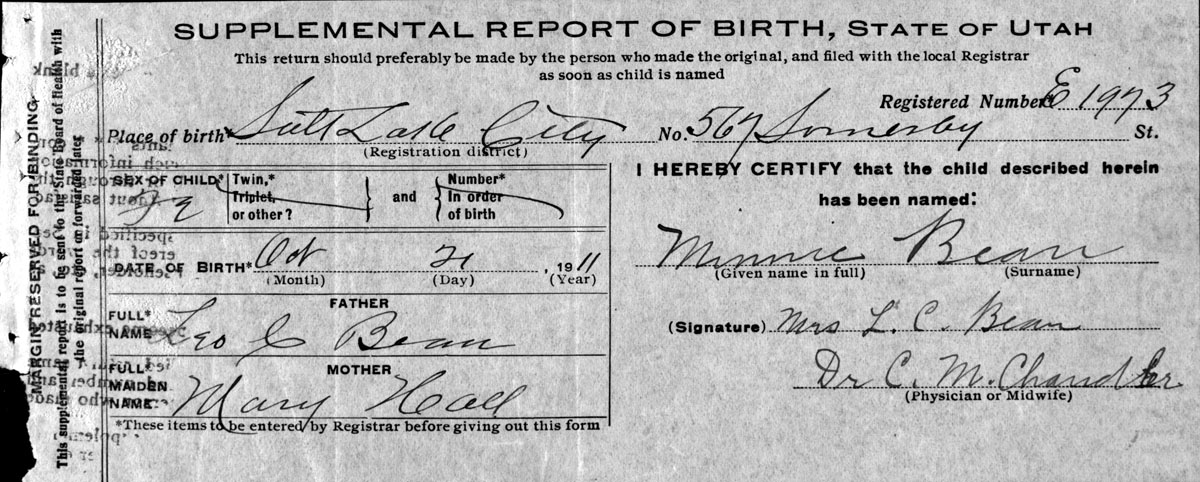 SUPPLEMENTAL REPORT OF BIRTH, STATE OF UTAH
This return should preferably be made by the person who made the original, and filed with the local Registrar
as soon as child is named
Registered Number E 1973
Place of birth* Salt Lake City No. 567 Somerby St.
(Registration district)
SEX OF CHILD* Fe
Twin,*
Triplet,
or other?
and
Number*
In order
of birth
DATE OF BIRTH* Oct 21, 1911
(Month) (Day) (Year)
FATHER
FULL*
NAME Leo C Bean
MOTHER
FULL*
MAIDEN
NAME Mary Hall
*These items to be entered by Registrar before giving out this form
I HEREBY CERTIFY that the child described herein
has been named:
Minnie Bean
(Given name in full) (Surname)
(Signature) Mrs L. C. Bean
Dr C. M. Chandler
(Physician or Midwife)
MARGIN RESERVED FOR BINDING.
This supplemental report is to be sent to the State Board of Health with
the original report or forwarded later